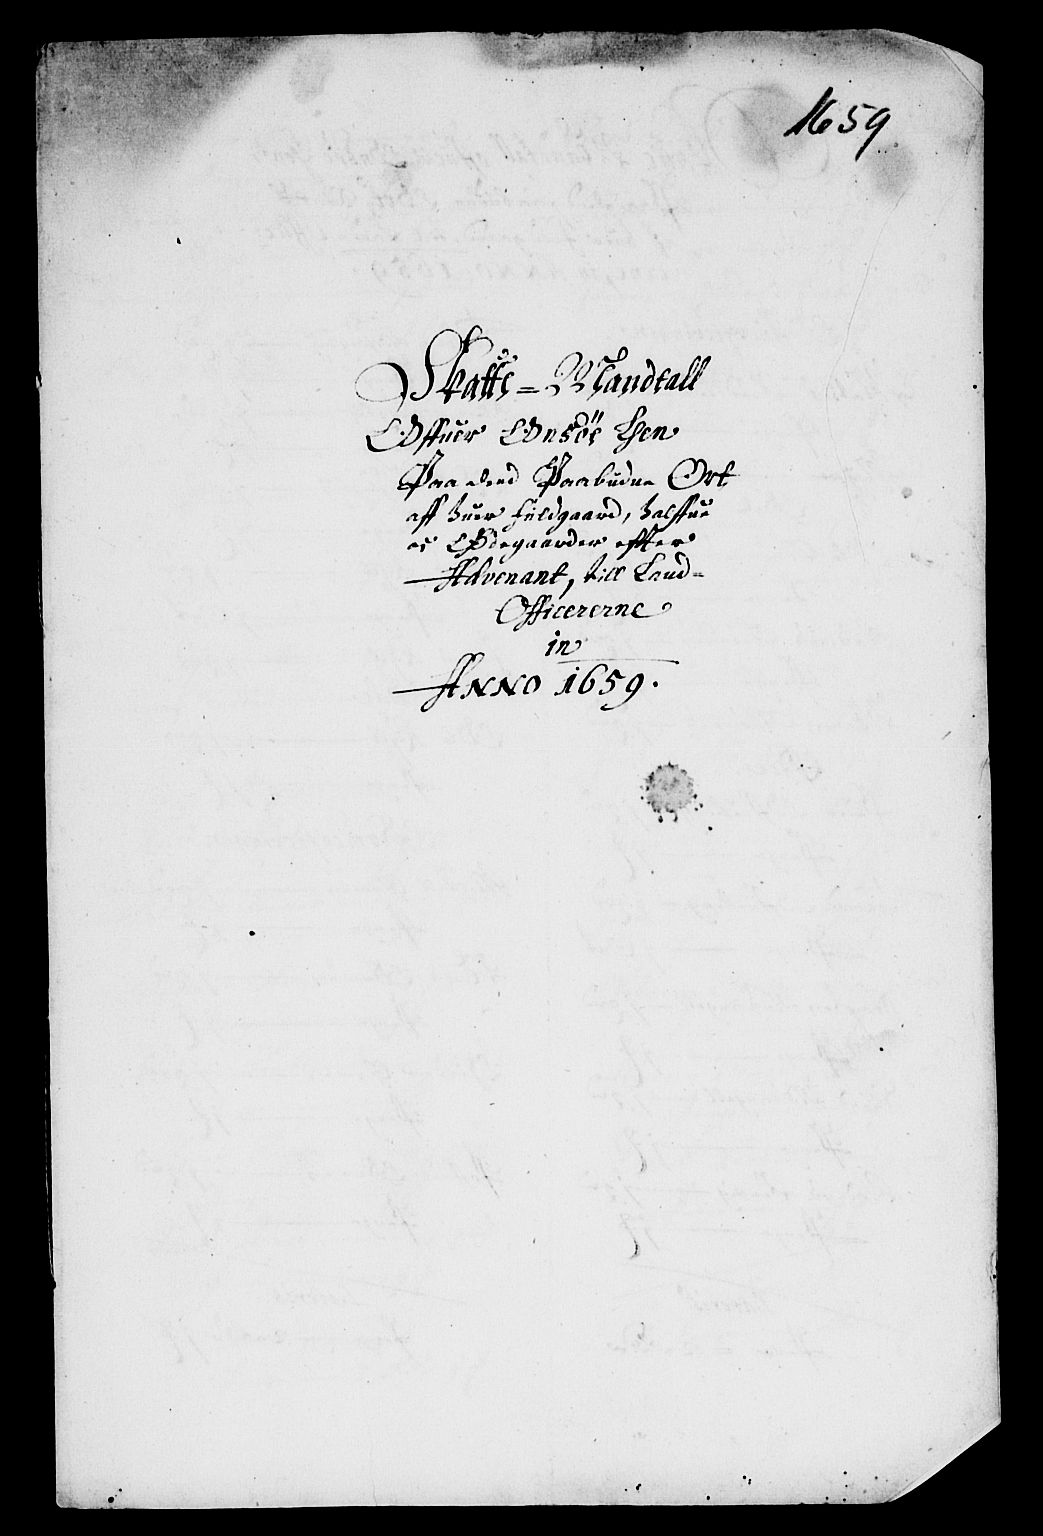 1659
Skatte-Mandtall
Offuer Onsöe Len
Paa dend Paabudne Ort
aff huer fuldgaard, halffue
oc Ødegaarder effter
Advenant, till Land-
Officererne
in
ANNO 1659.